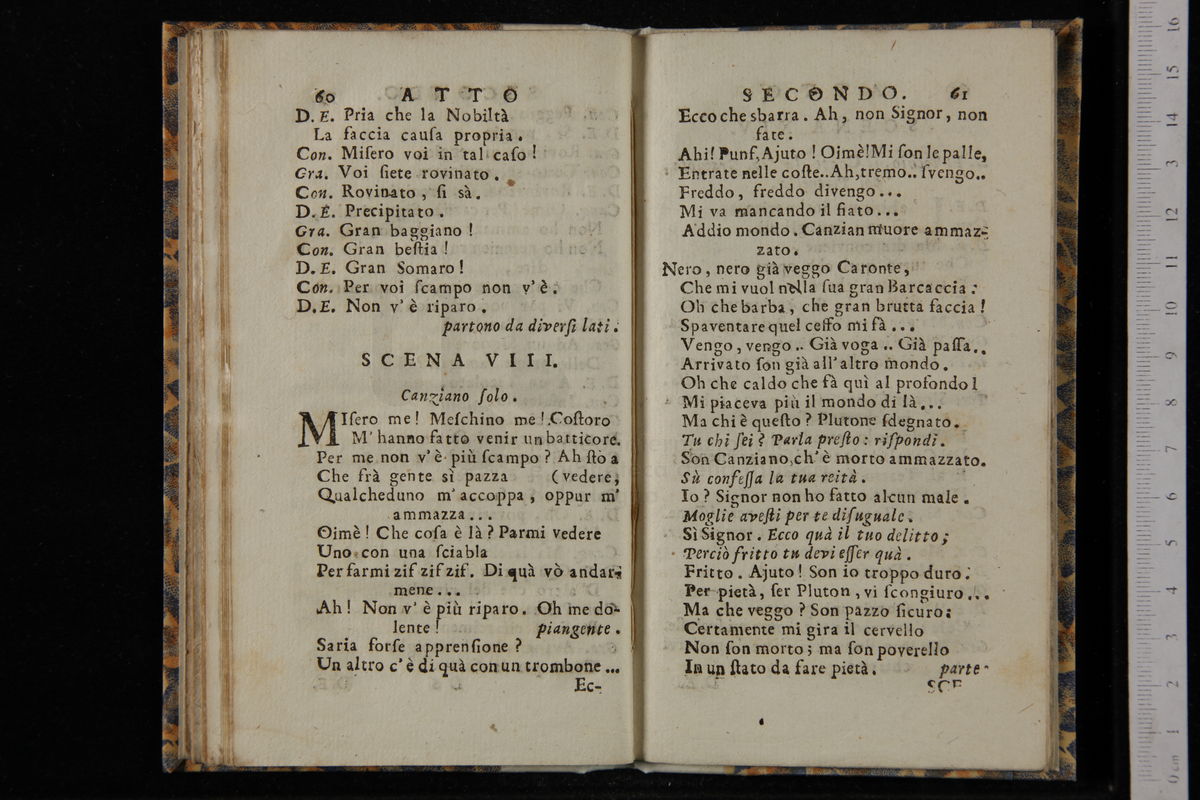 60 ATTO
D. E. Pria che la Nobiltà
La faccia cauſa propria.
Con. Miſero voi in tal caſo!
Gra. Voi ſiete rovinato.
Con. Rovinato, ſi sà.
D. E. Precipitato.
Gra. Gran baggiano!
Con. Gran beſtia!
D. E. Gran Somaro!
Con. Per voi ſcampo non v'è.
D. E. Non v'è riparo.
partono da diverſi lati.
SCENA VIII.
Canziano ſolo.
MIſero me! Meſchino me! Coſtoro
M'hanno fatto venir un batticore.
Per me non v'è più ſcampo? Ah ſtò a
Che frà gente sì pazza (vedere,
Qualcheduno m'accoppa, oppur m'
ammazza...
Oimè! Che coſa è là? Parmi vedere
Uno con una ſciabla
Per farmi zif zif zif. Di quà vò andar-
mene...
Ah! Non v'è più riparo. Oh me do-
lente! piangente.
Saria forſe apprenſione?
Un altro c'è di quà con un trombone...
Ec-
SECONDO. 61
Ecco che sbarra. Ah, non Signor, non
fate.
Ahi! Punf, Ajuto! Oimè! Mi ſon le palle,
Entrate nelle coſte.. Ah, tremo.. ſvengo..
Freddo, freddo divengo...
Mi va mancando il fiato...
Addio mondo. Canzian muore ammaz-
zato.
Nero, nero già veggo Caronte,
Che mi vuol nella ſua gran Barcaccia:
Oh che barba, che gran brutta faccia!
Spaventare quel ceffo mi fà...
Vengo, vengo.. Già voga.. Già paſſa..
Arrivato ſon già all'altro mondo.
Oh che caldo che fà quì al profondo!
Mi piaceva più il mondo di là...
Ma chi è queſto? Plutone ſdegnato.
Tu chi ſei? Parla preſto: riſpondi.
Son Canziano, ch'è morto ammazzato.
Sù confeſſa la tua reità.
Io? Signor non ho fatto alcun male.
Moglie aveſti per te diſuguale.
Sì Signor. Ecco quà il tuo delitto;
Perciò fritto tu devi eſſer quà.
Fritto. Ajuto! Son io troppo duro.
Per pietà, ſer Pluton, vi ſcongiuro...
Ma che veggo? Son pazzo ſicuro:
Certamente mi gira il cervello
Non ſon morto; ma ſon poverello
In un ſtato da fare pietà. parte
SCE